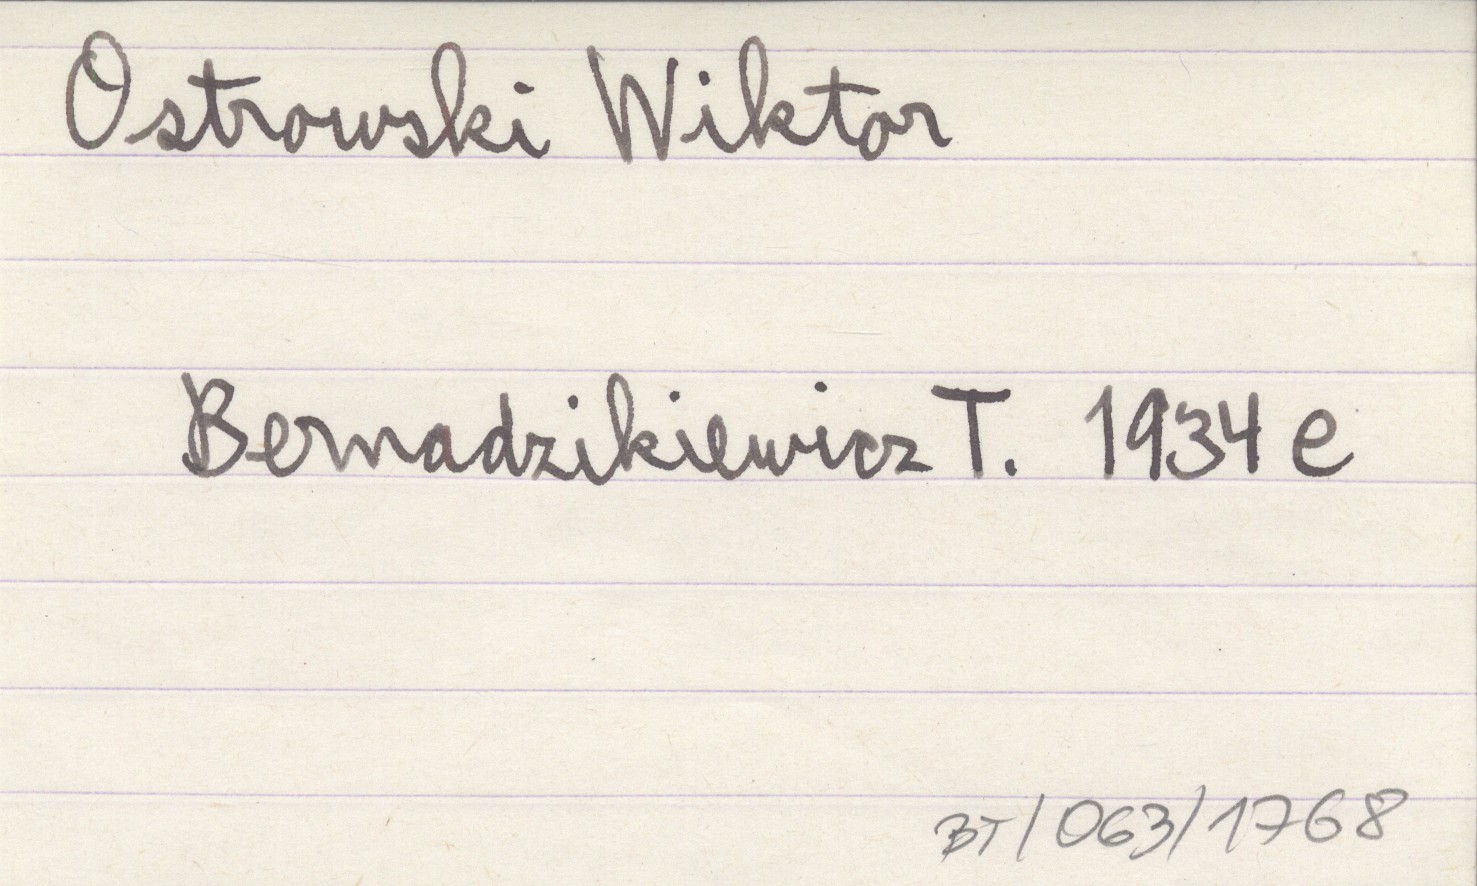 Ostrowski Wiktor
Bernadzikiewicz T. 1934 e
BT/063/1768